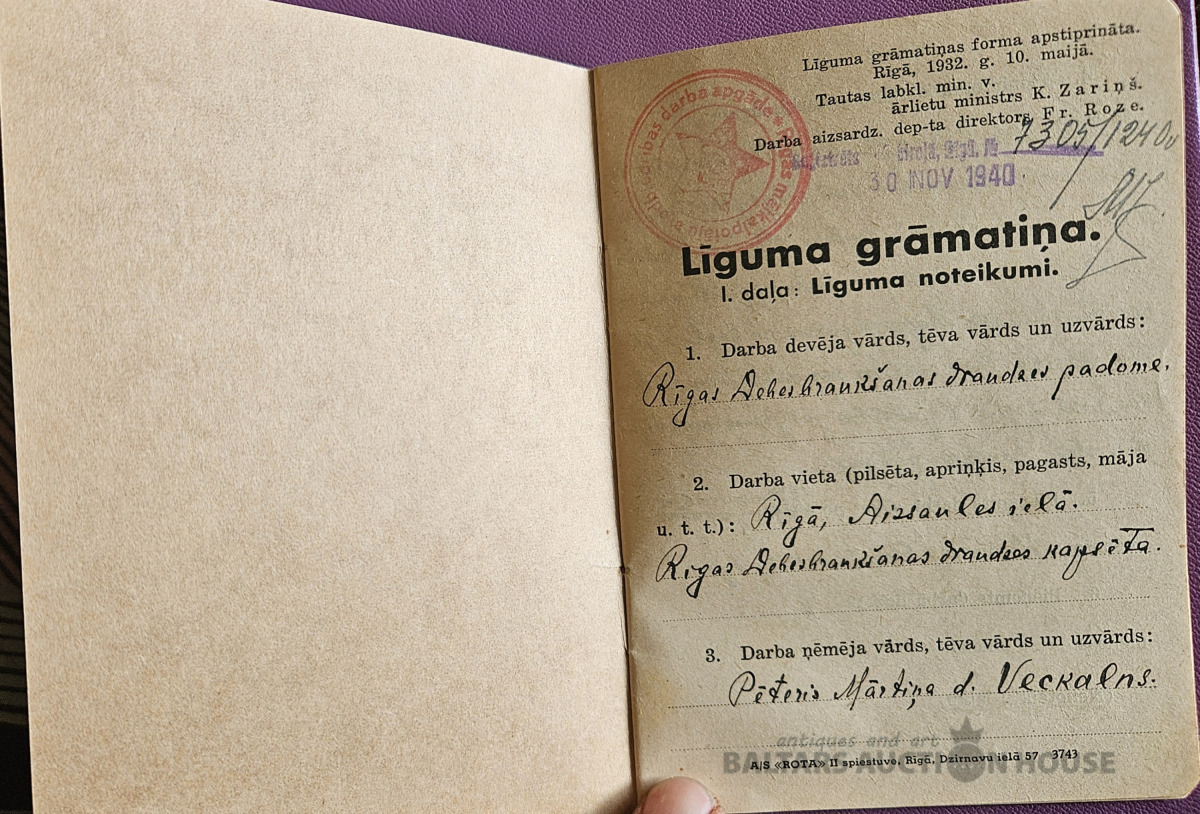 Līguma grāmatiņas forma apstiprināta.
Rīgā, 1932. g. 10. maijā.
Tautas labkl. min. v.
ārlietu ministrs K. Zariņš.
Darba aizsardz. dep-ta direktors Fr. Roze.
birojā, Rīgā, №
7305/1240
30 NOV 1940.
darba apgāde
Līguma grāmatiņa.
I. daļa: Līguma noteikumi.
1. Darba devēja vārds, tēva vārds un uzvārds:
Rīgas Debesbraukšanas draudzes padome.
2. Darba vieta (pilsēta, apriņķis, pagasts, māja
u. t. t.): Rīgā, Aizsaules ielā.
Rīgas Debesbraukšanas draudzes kapsēta.
3. Darba ņēmēja vārds, tēva vārds un uzvārds:
Pēteris Mārtiņa d. Veckalns.
antiques and art
BALTARS AUCTION HOUSE
A/S «ROTA» II spiestuve, Rīgā, Dzirnavu ielā 57 3743